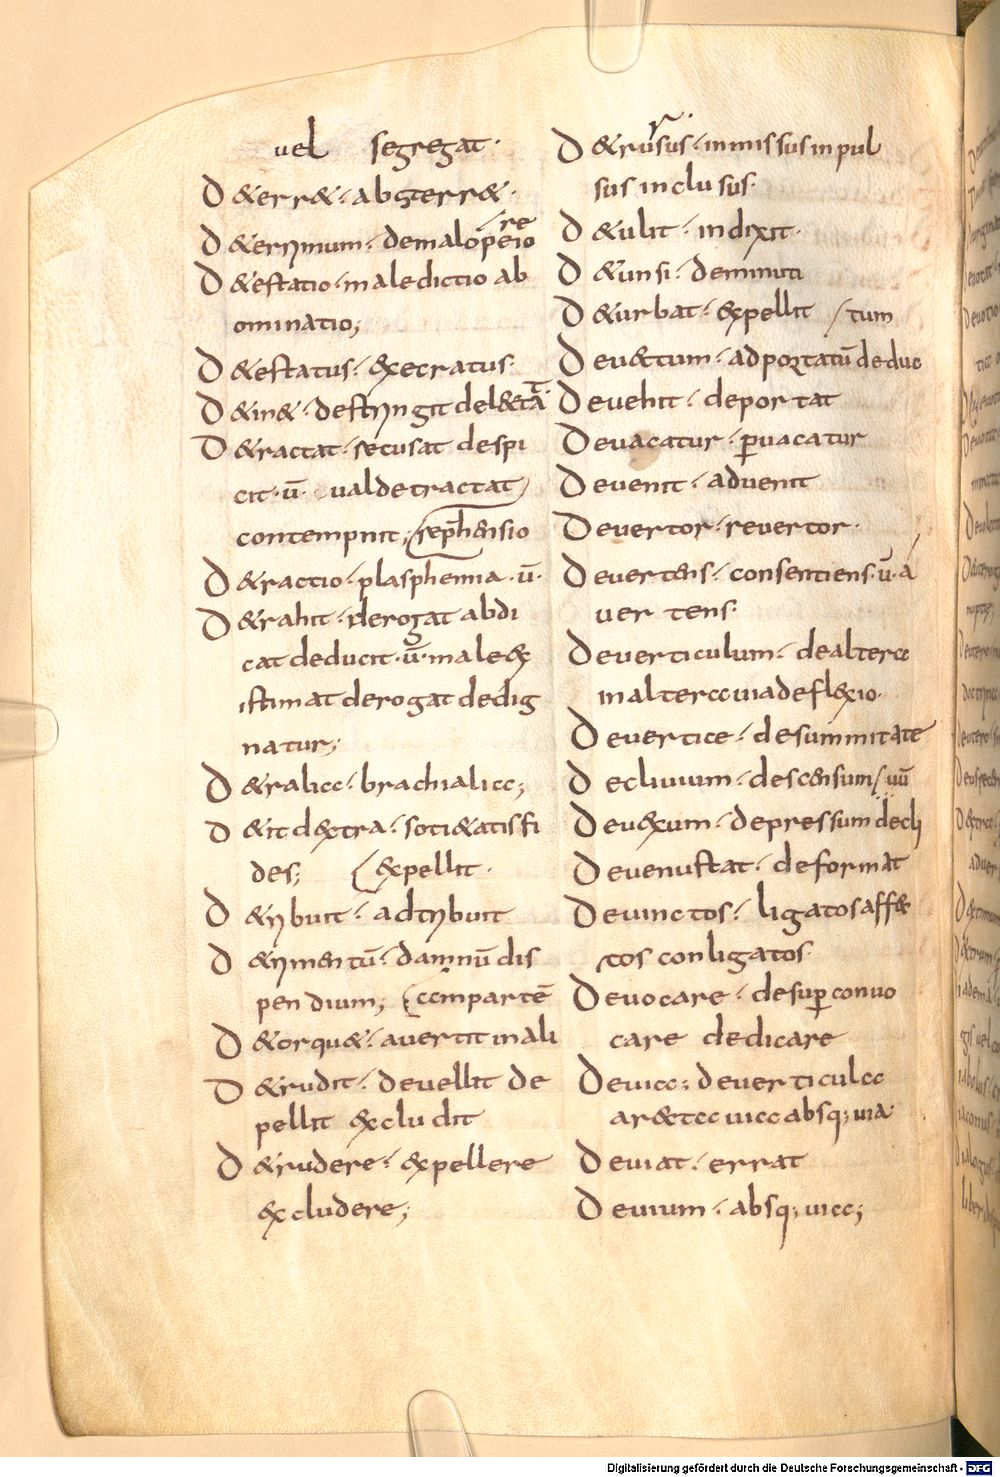 uel segregat·
D&err&· absterr&·
D&erımum· demalo peiore
D&estatio· maledictio ab
ominatio;
D&estatus· execratus·
D&in&· destringit
D&ractat· recusat despi
cit· ū· ualde tractat
contempnit; rep̄hensio
D&ractio· plasphemia· ū·
D&rahit· derogat abdi
cat deducit· ū· male ex
istimat derogat dedig
natur;
D&ralicc· brachialicc;
D&it dextra· soti&atis fi
des; expellit·
D&ribuit· adtribuit
D&rimentū· damnū dis
pendium; ccmpartē
D&orqu&· auertit in ali
D&rudit· deuellit de
pellit excludit
D&rudere· expellere
excludere;
D&rusus· inmissus inpul
sus inclusus·
D&ulit· indixit·
D&unsi· deminuti
D&urbat· expellit / tum
Deu&tum· adportatū deduc
Deuehit· deportat
Deuacatur· ꝑuacatur
Deuenit· aduenit
Deuertor· reuertor·
Deuertens· consentiens· ū· a
uertens·
Deuerticulum· dealtercc
in altercc uia deflexio·
Deuertice· desummitate
Decliuium· descensum / uū
Deuexum· depressum decli
Deuenustat· deformat
Deuinctos· ligatos affec
tos conligatos·
Deuocare· desuꝑ conuo
care dedicare
Deuicc; deuerticulcc
ar&tcc uicc absq; uia·
Deuiat· errat
Deuium· absq; uicc;
Digitalisierung gefördert durch die Deutsche Forschungsgemeinschaft - DFG